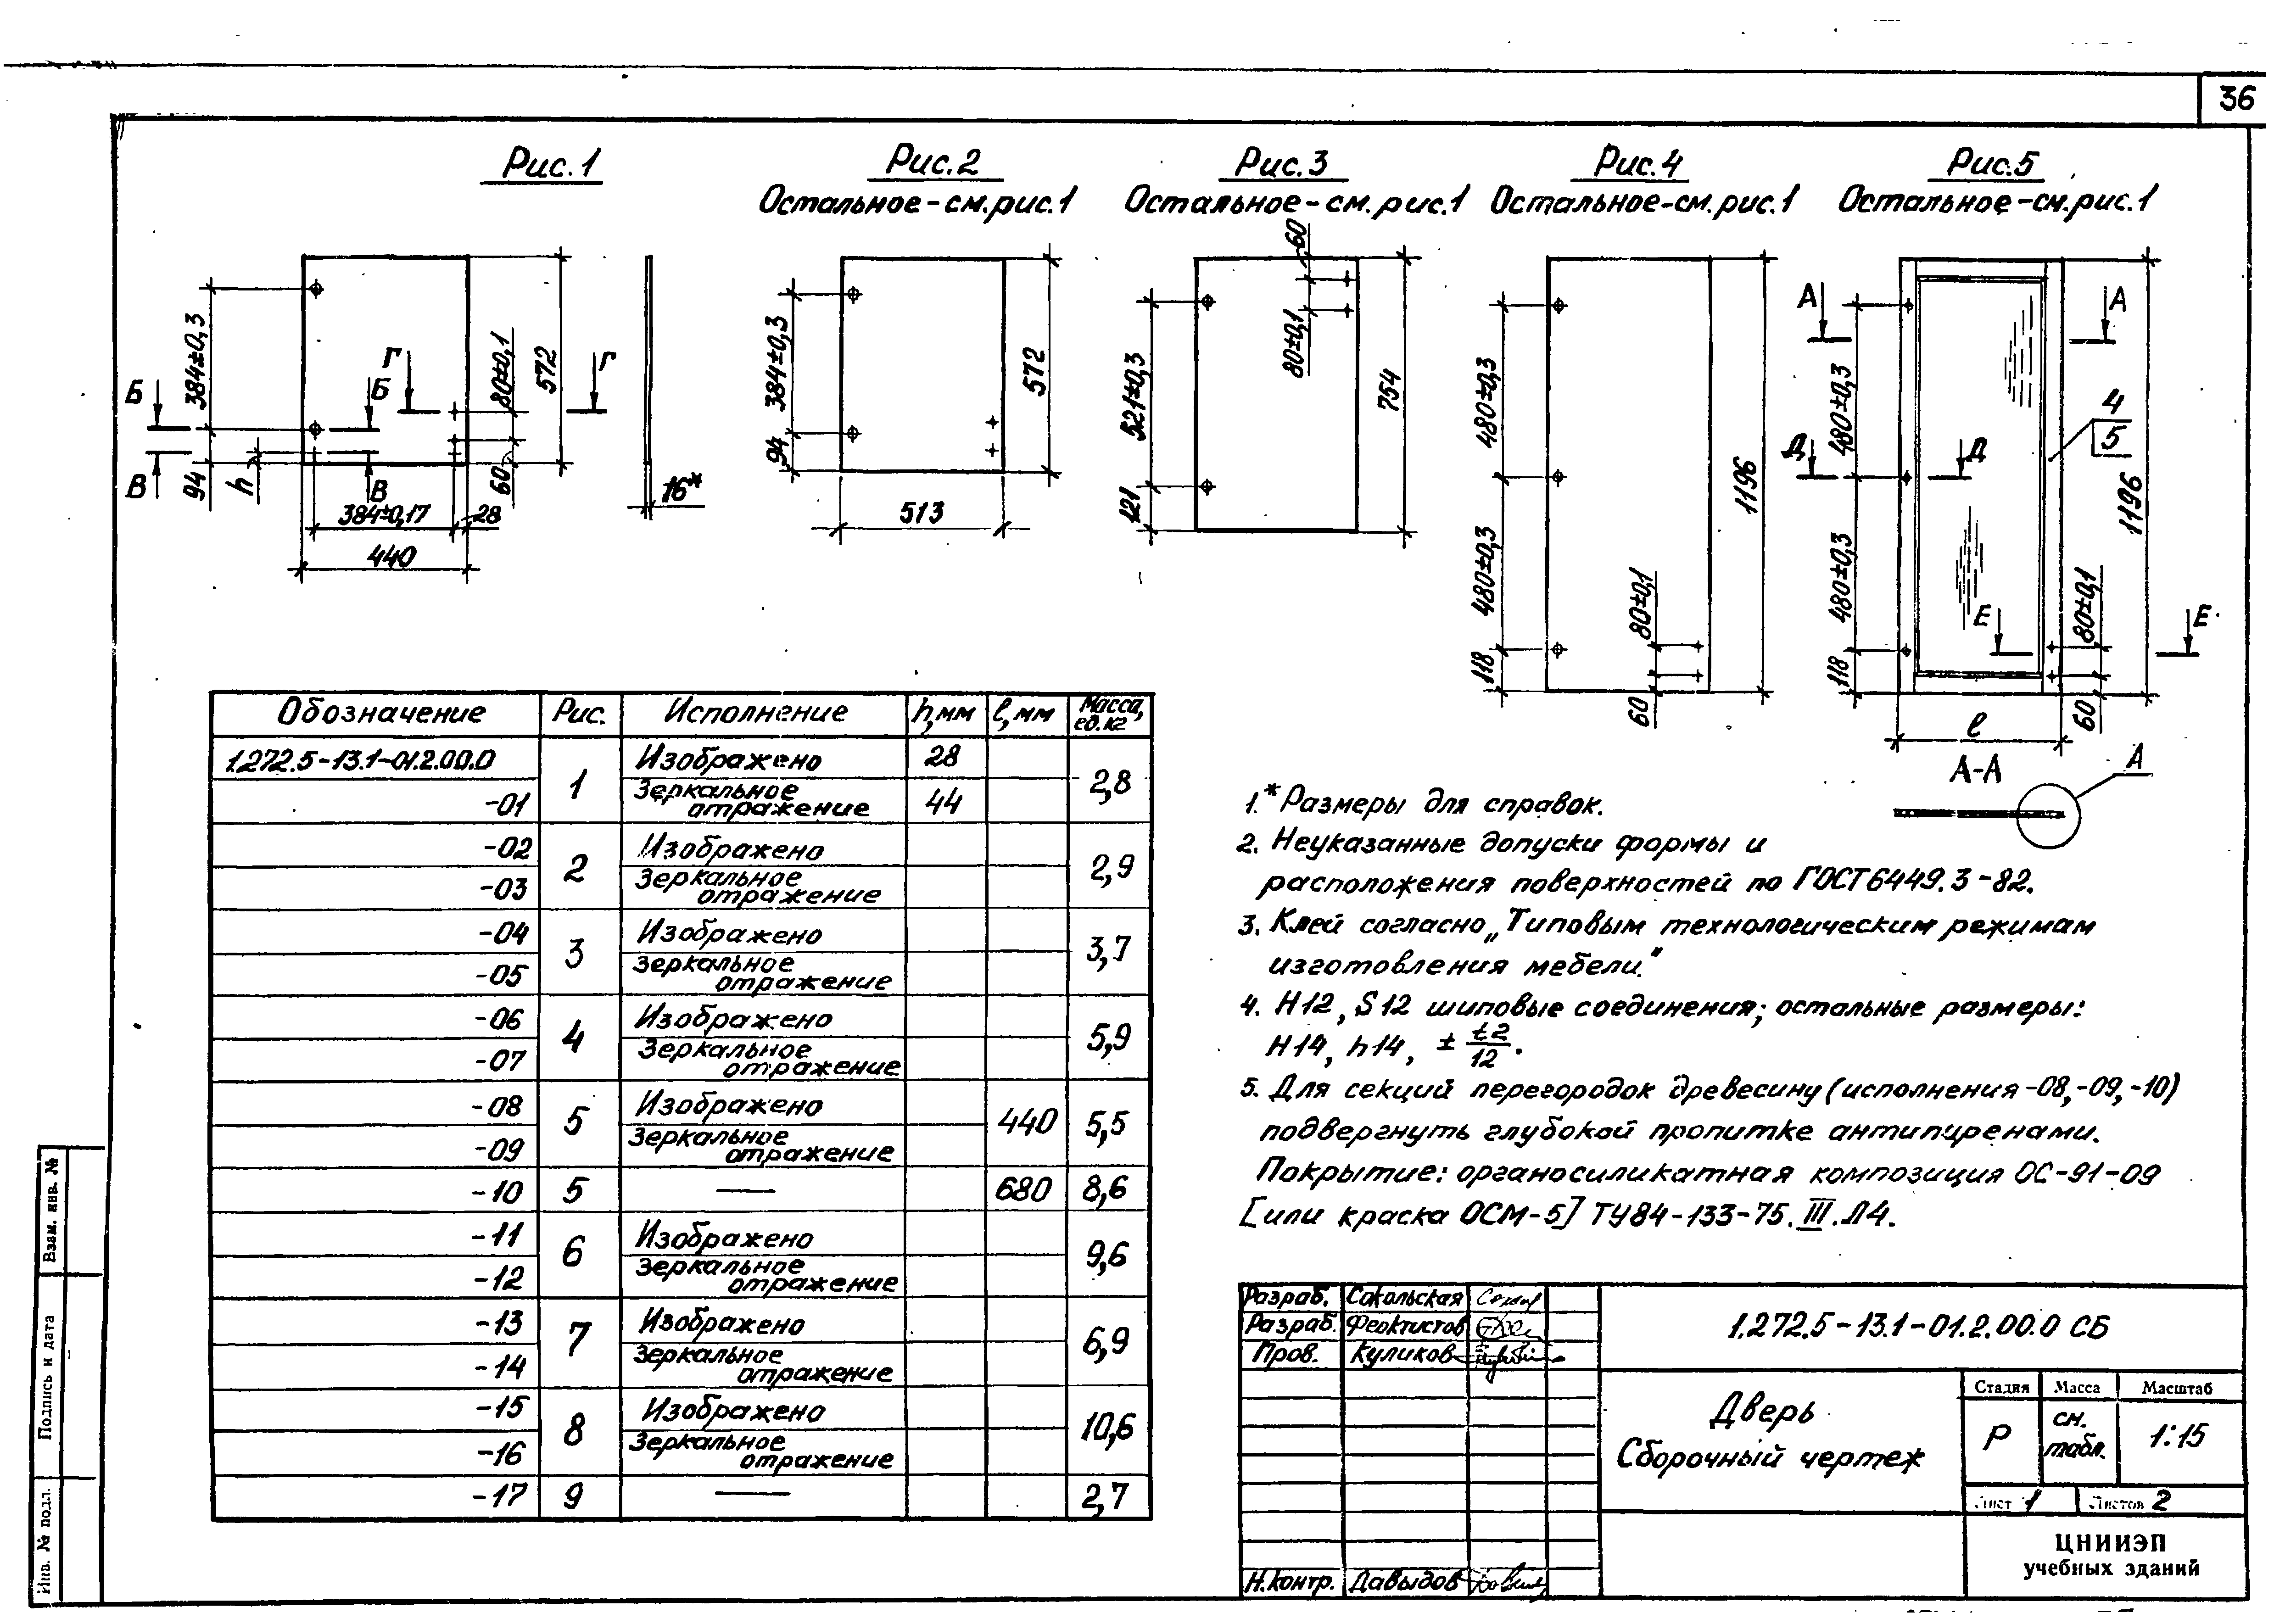 36
Рис.1
Рис.2
Остальное-см.рис.1
Рис.3
Остальное-см.рис.1
Рис.4
Остальное-см.рис.1
Рис.5
Остальное-см.рис.1
384±0,3
94
h
Б
В
Б
В
Г
Г
80±0,1
60
572
384±0,17
28
440
16*
384±0,3
94
572
513
60
80±0,1
521±0,3
121
754
480±0,3
480±0,3
118
80±0,1
60
1196
А
А
480±0,3
Д
Д
480±0,3
118
4
5
Е
Е
80±0,1
60
1196
ℓ
А-А
А
Обозначение Рис. Исполнение h,мм ℓ,мм Масса, ед.кг
1.272.5-13.1-01.2.00.0 1 Изображено 28 2,8
-01 Зеркальное отражение 44
-02 2 Изображено 2,9
-03 Зеркальное отражение
-04 3 Изображено 3,7
-05 Зеркальное отражение
-06 4 Изображено 5,9
-07 Зеркальное отражение
-08 5 Изображено 440 5,5
-09 Зеркальное отражение
-10 5 — 680 8,6
-11 6 Изображено 9,6
-12 Зеркальное отражение
-13 7 Изображено 6,9
-14 Зеркальное отражение
-15 8 Изображено 10,6
-16 Зеркальное отражение
-17 9 — 2,7
1.* Размеры для справок.
2. Неуказанные допуски формы и
расположения поверхностей по ГОСТ6449.3-82.
3. Клей согласно „Типовым технологическим режимам
изготовления мебели."
4. H12, S12 шиповые соединения; остальные размеры:
H14, h14, ± t2/12.
5. Для секций перегородок древесину (исполнения -08,-09,-10)
подвергнуть глубокой пропитке антипиренами.
Покрытие: органосиликатная композиция ОС-91-09
[или краска ОСМ-5] ТУ84-133-75.III.Л4.
Разраб. Сокольская
Разраб. Феоктистов
Пров. Куликов
Н.контр. Давыдов
1.272.5-13.1-01.2.00.0 СБ
Дверь
Сборочный чертеж
Стадия Масса Масштаб
Р см. табл. 1:15
Лист 1 Листов 2
ЦНИИЭП
учебных зданий
Взам. инв. №
Подпись и дата
Инв. № подл.